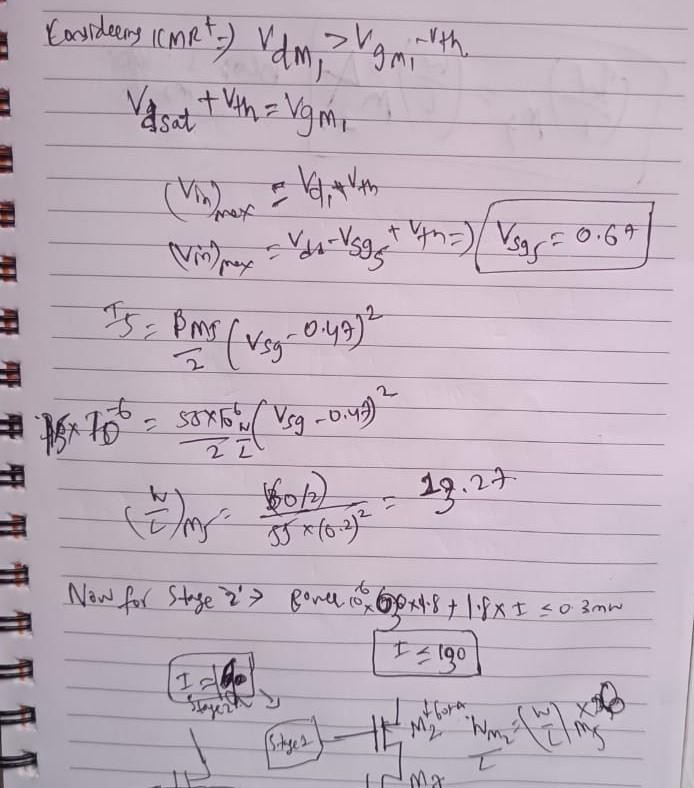 Considering ICMR⁺ => V_dM₁ > V_gM₁ - Vth
V_dsat + Vth = V_gM₁
(Vin)max = V_d₁ + Vth
(Vin)max = Vdd - Vsg₅ + Vth => Vsg₅ = 0.67
I₅ = βM5/2 (Vsg - 0.47)²
× 10⁻⁶ = 55×10⁻⁶/2 W/L (Vsg - 0.47)²
(W/L)M5 = (60/2) / 55×(0.2)² = 27
Now for Stage 2 → Power 10⁻⁶ × ×1.8 + 1.8 × I ≤ 0.3mW
I ≤ 190
I =
Stage 2
Stage 2 M₂ W_M₂/L = (W/L)M5 ×